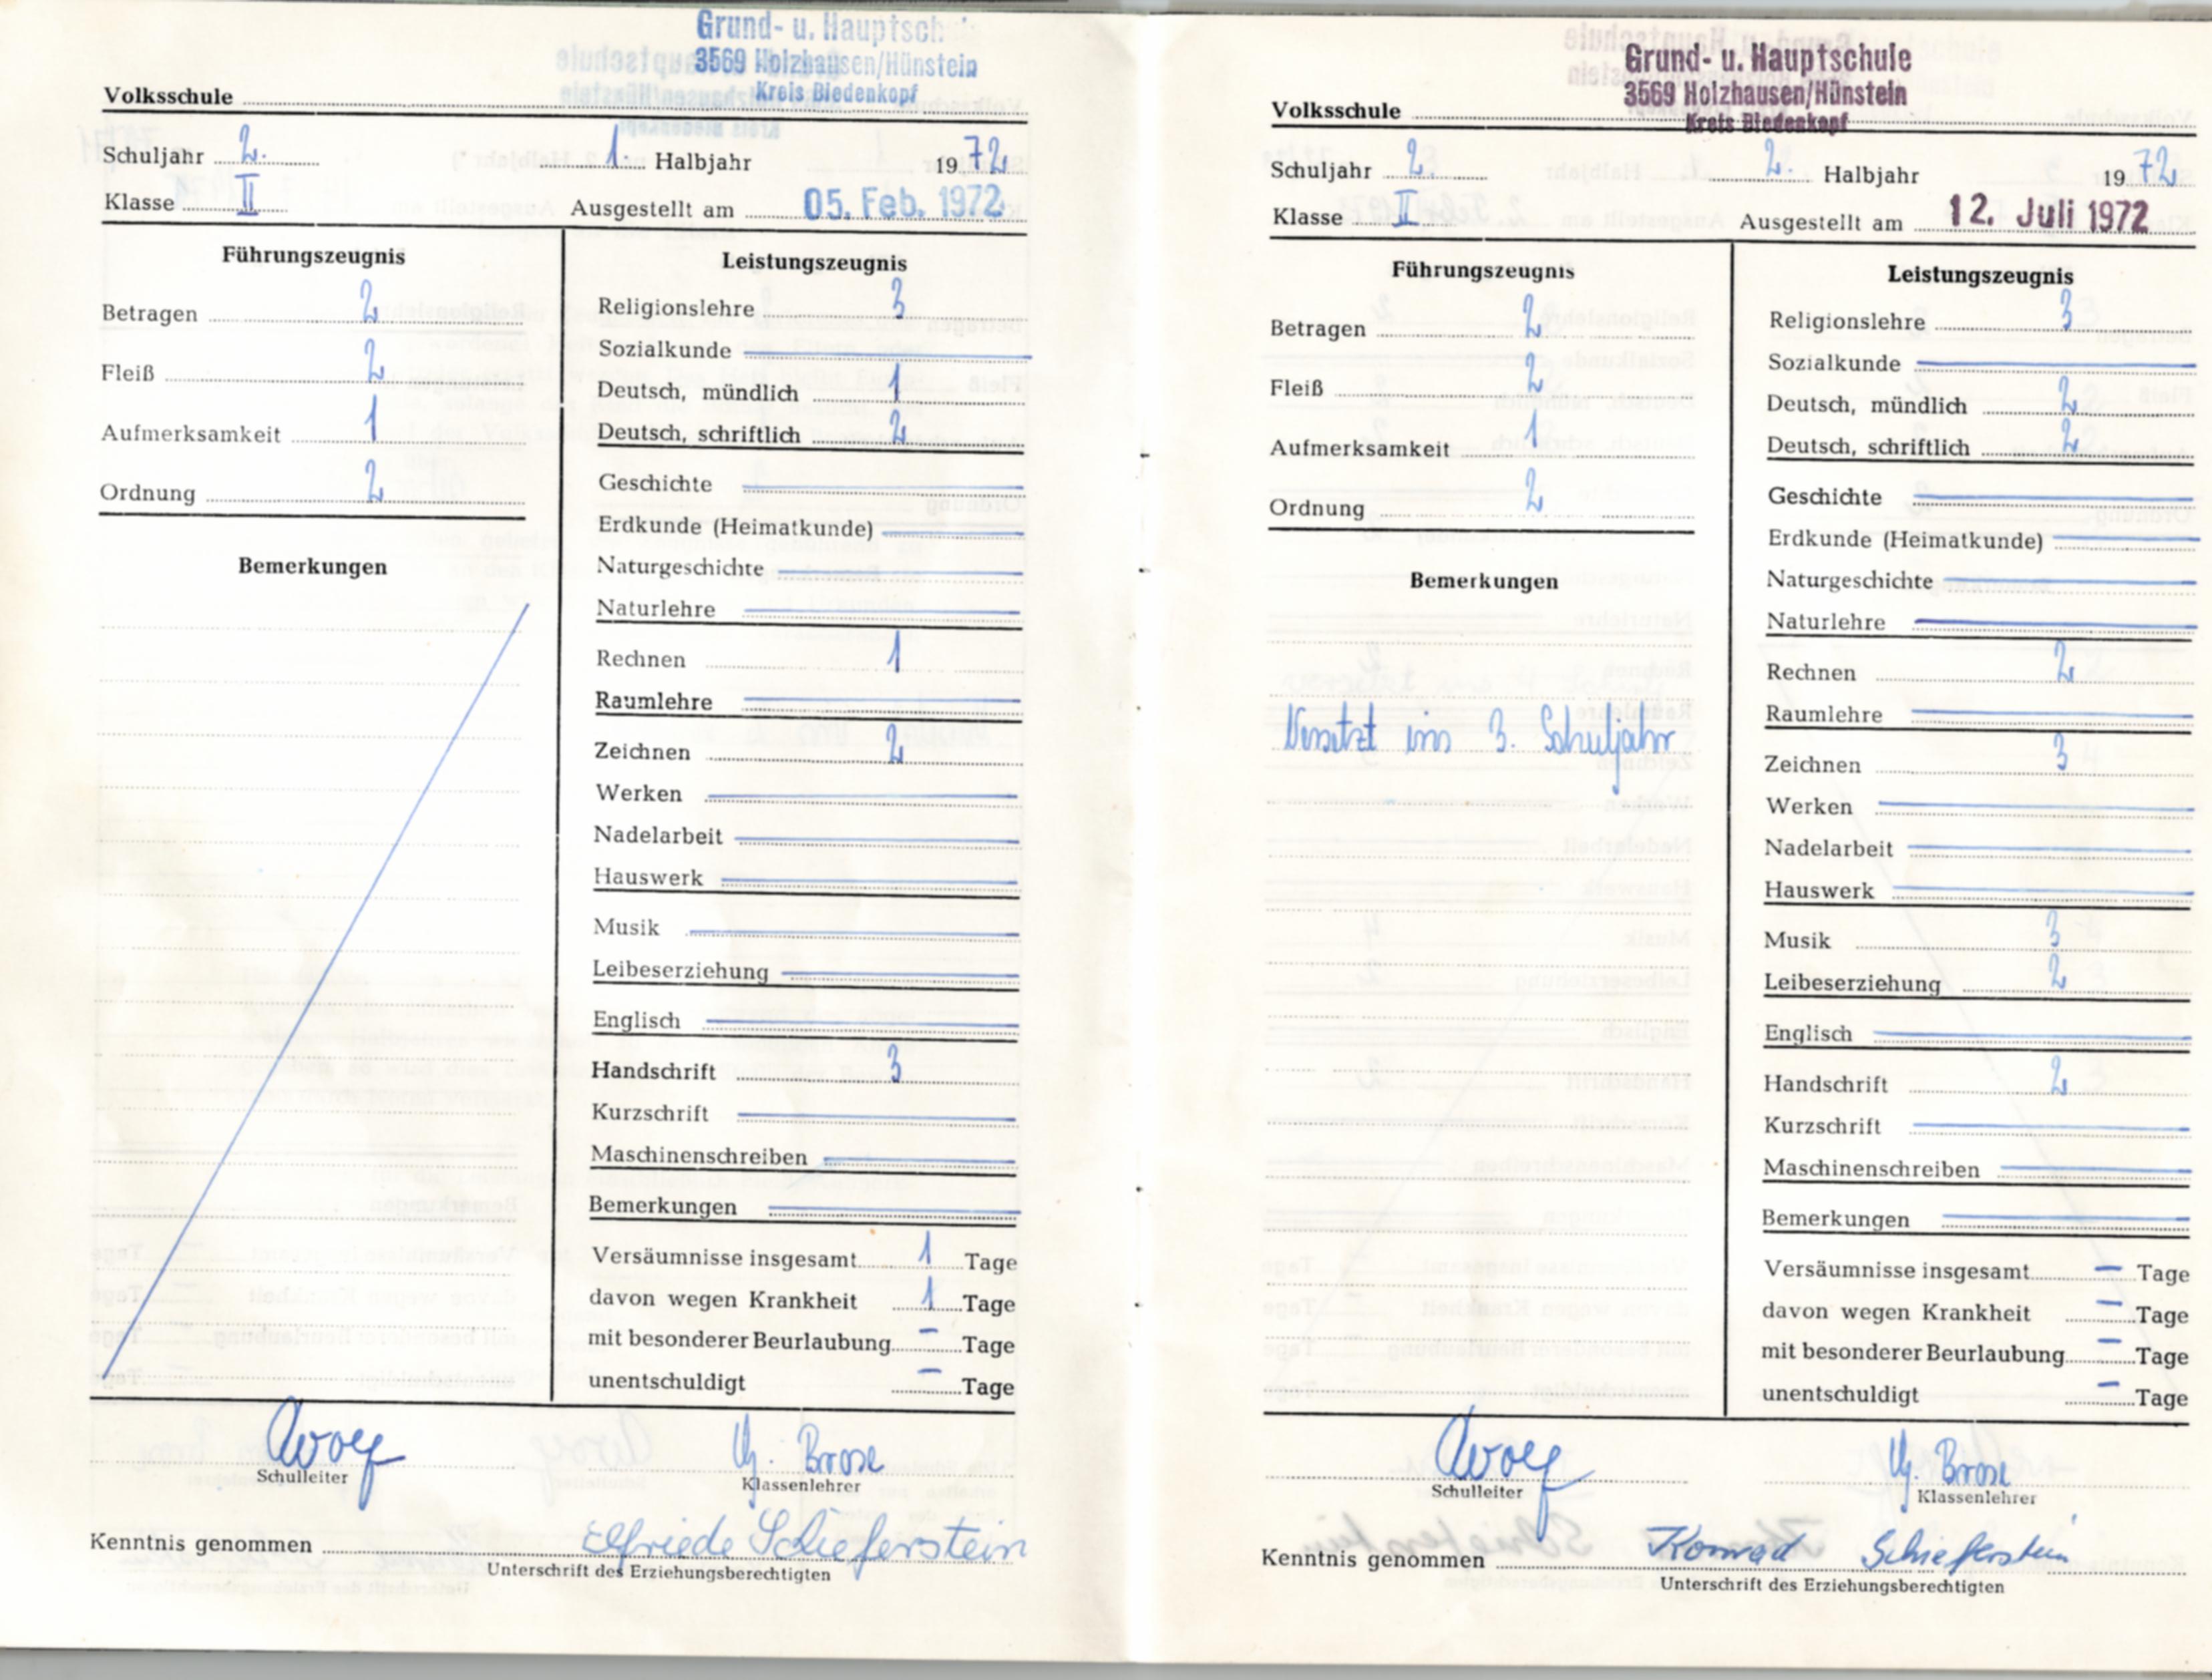 Grund- u. Hauptsch
3569 Holzhausen/Hünstein
Kreis Biedenkopf
Volksschule
Schuljahr 2. 1. Halbjahr 1972
Klasse II Ausgestellt am 05. Feb. 1972
Führungszeugnis
Betragen 2
Fleiß 2
Aufmerksamkeit 1
Ordnung 2
Bemerkungen
Leistungszeugnis
Religionslehre 3
Sozialkunde
Deutsch, mündlich 1
Deutsch, schriftlich 2
Geschichte
Erdkunde (Heimatkunde)
Naturgeschichte
Naturlehre
Rechnen 1
Raumlehre
Zeichnen 2
Werken
Nadelarbeit
Hauswerk
Musik
Leibeserziehung
Englisch
Handschrift 3
Kurzschrift
Maschinenschreiben
Bemerkungen
Versäumnisse insgesamt 1 Tage
davon wegen Krankheit 1 Tage
mit besonderer Beurlaubung – Tage
unentschuldigt – Tage
Schulleiter
Brose
Klassenlehrer
Kenntnis genommen Elfriede Schieferstein
Unterschrift des Erziehungsberechtigten
Grund- u. Hauptschule
3569 Holzhausen/Hünstein
Kreis Biedenkopf
Volksschule
Schuljahr 2. 2. Halbjahr 1972
Klasse II Ausgestellt am 12. Juli 1972
Führungszeugnis
Betragen 2
Fleiß 2
Aufmerksamkeit 1
Ordnung 2
Bemerkungen
Versetzt ins 3. Schuljahr
Leistungszeugnis
Religionslehre 3
Sozialkunde
Deutsch, mündlich 2
Deutsch, schriftlich 2
Geschichte
Erdkunde (Heimatkunde)
Naturgeschichte
Naturlehre
Rechnen 2
Raumlehre
Zeichnen 3
Werken
Nadelarbeit
Hauswerk
Musik 3
Leibeserziehung 2
Englisch
Handschrift 2
Kurzschrift
Maschinenschreiben
Bemerkungen
Versäumnisse insgesamt – Tage
davon wegen Krankheit – Tage
mit besonderer Beurlaubung – Tage
unentschuldigt – Tage
Schulleiter
Brose
Klassenlehrer
Kenntnis genommen Konrad Schieferstein
Unterschrift des Erziehungsberechtigten